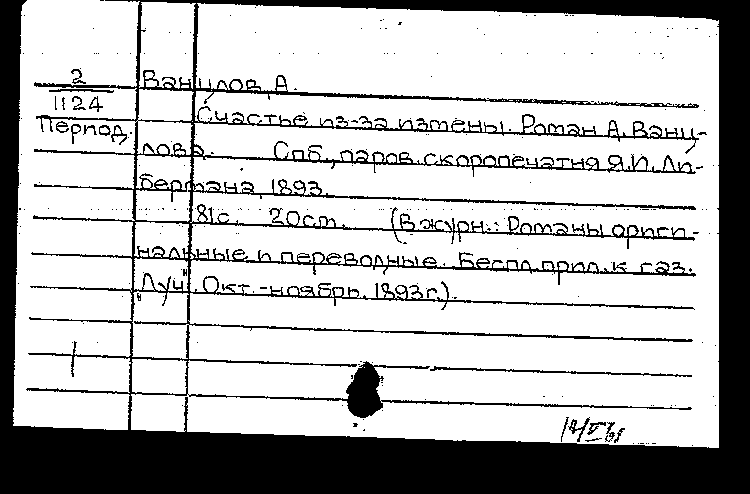 2
1124
Период.
Ванцлов, А.
Счастье из-за измены. Роман А. Ванц-
лова. Спб., паров. скоропечатня Я.И. Ли-
бермана, 1893.
81с. 20см. (В журн.: Романы ориги-
нальные и переводные. Беспл. прил. к газ.
"Луч". Окт.-ноябрь. 1893г.).